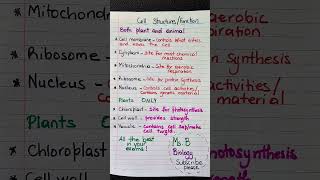 Cell Structures/Function
Both plant and animal
* Cell membrane - Controls what enters
and leaves the cell
* Cytoplasm - Site for most chemical
reactions
* Mitochondria - Site for aerobic
respiration
* Ribosome - Site for protein Synthesis
* Nucleus - Controls cell activities/
Contains genetic material
Plants ONLY
* Chloroplast - Site for photosynthesis
* Cell wall - provides strength
* Vacuole - Contains cell sap/makes
cell turgid.
All the best
in your
exams!
Ms. B
Biology
Subscribe
please
* Mitochond
* Ribosome
* Nucleus
Plants
* Chloroplast
aerobic
piration
Synthesis
activities/
material
otosynthesis